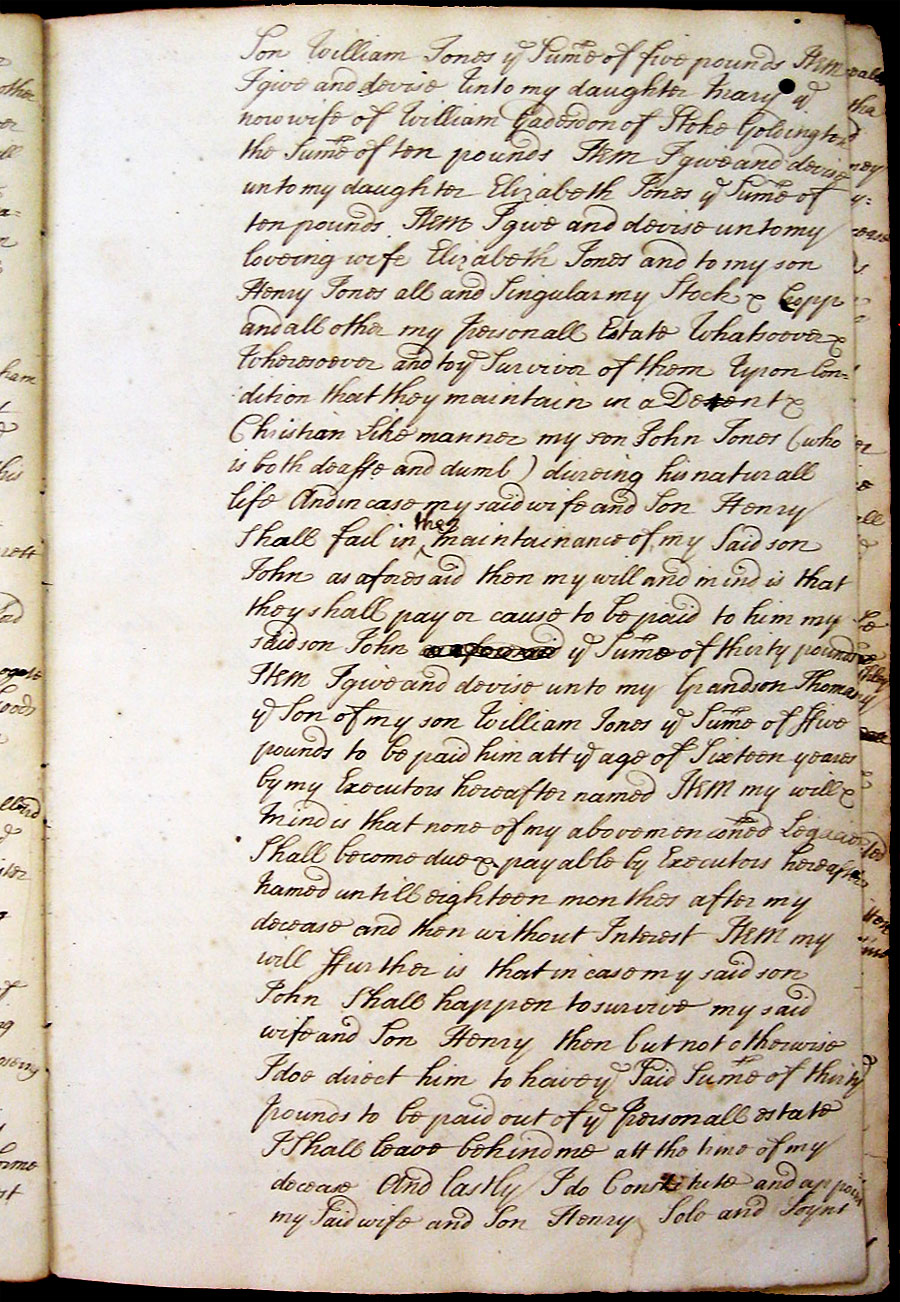 Son William Jones yͤ Sum̃e of five pounds Item
I give and devise Unto my daughter Mary yͤ
now wife of William Gadesdon of Stoke Goldington
the Sum̃e of ten pounds Item I give and devise
unto my daughter Elizabeth Jones yͤ Sum̃e of
ten pounds Item I give and devise unto my
loveing wife Elizabeth Jones and to my son
Henry Jones all and Singular my Stock & Cropp
and all other my personall Estate Whatsoever &
Wheresoever and to yͤ Survivor of them Upon Con=
dition that they maintain in a Decent &
Christian Like manner my son John Jones (who
is both deaffe and dumb) dureing his naturall
life And in case my said wife and Son Henry
Shall fail in the maintainance of my Said son
John as aforesaid then my will and mind is that
they shall pay or cause to be paid to him my
said son John yͤ Sum̃e of thirty pounds
Item I give and devise unto my Grandson Thomas
yͤ Son of my son William Jones yͤ Sum̃e of ffive
pounds to be paid him att yͤ age of Sixteen yeares
by my Executors hereafter named Item my will &
mind is that none of my abovemenc̃oned Legacies
Shall become due & payable by Executors hereafter
named untill eighteen monthes after my
decease and then without Interest Item my
will ffurther is that in case my said son
John Shall happen to survive my said
wife and Son Henry then but not otherwise
I doe direct him to have yͤ Said Sum̃e of thirty
pounds to be paid out of yͤ personall estate
I Shall leave behind me att the time of my
decease And lastly I do Constitute and appoint
my Said wife and Son Henry Sole and Joynt